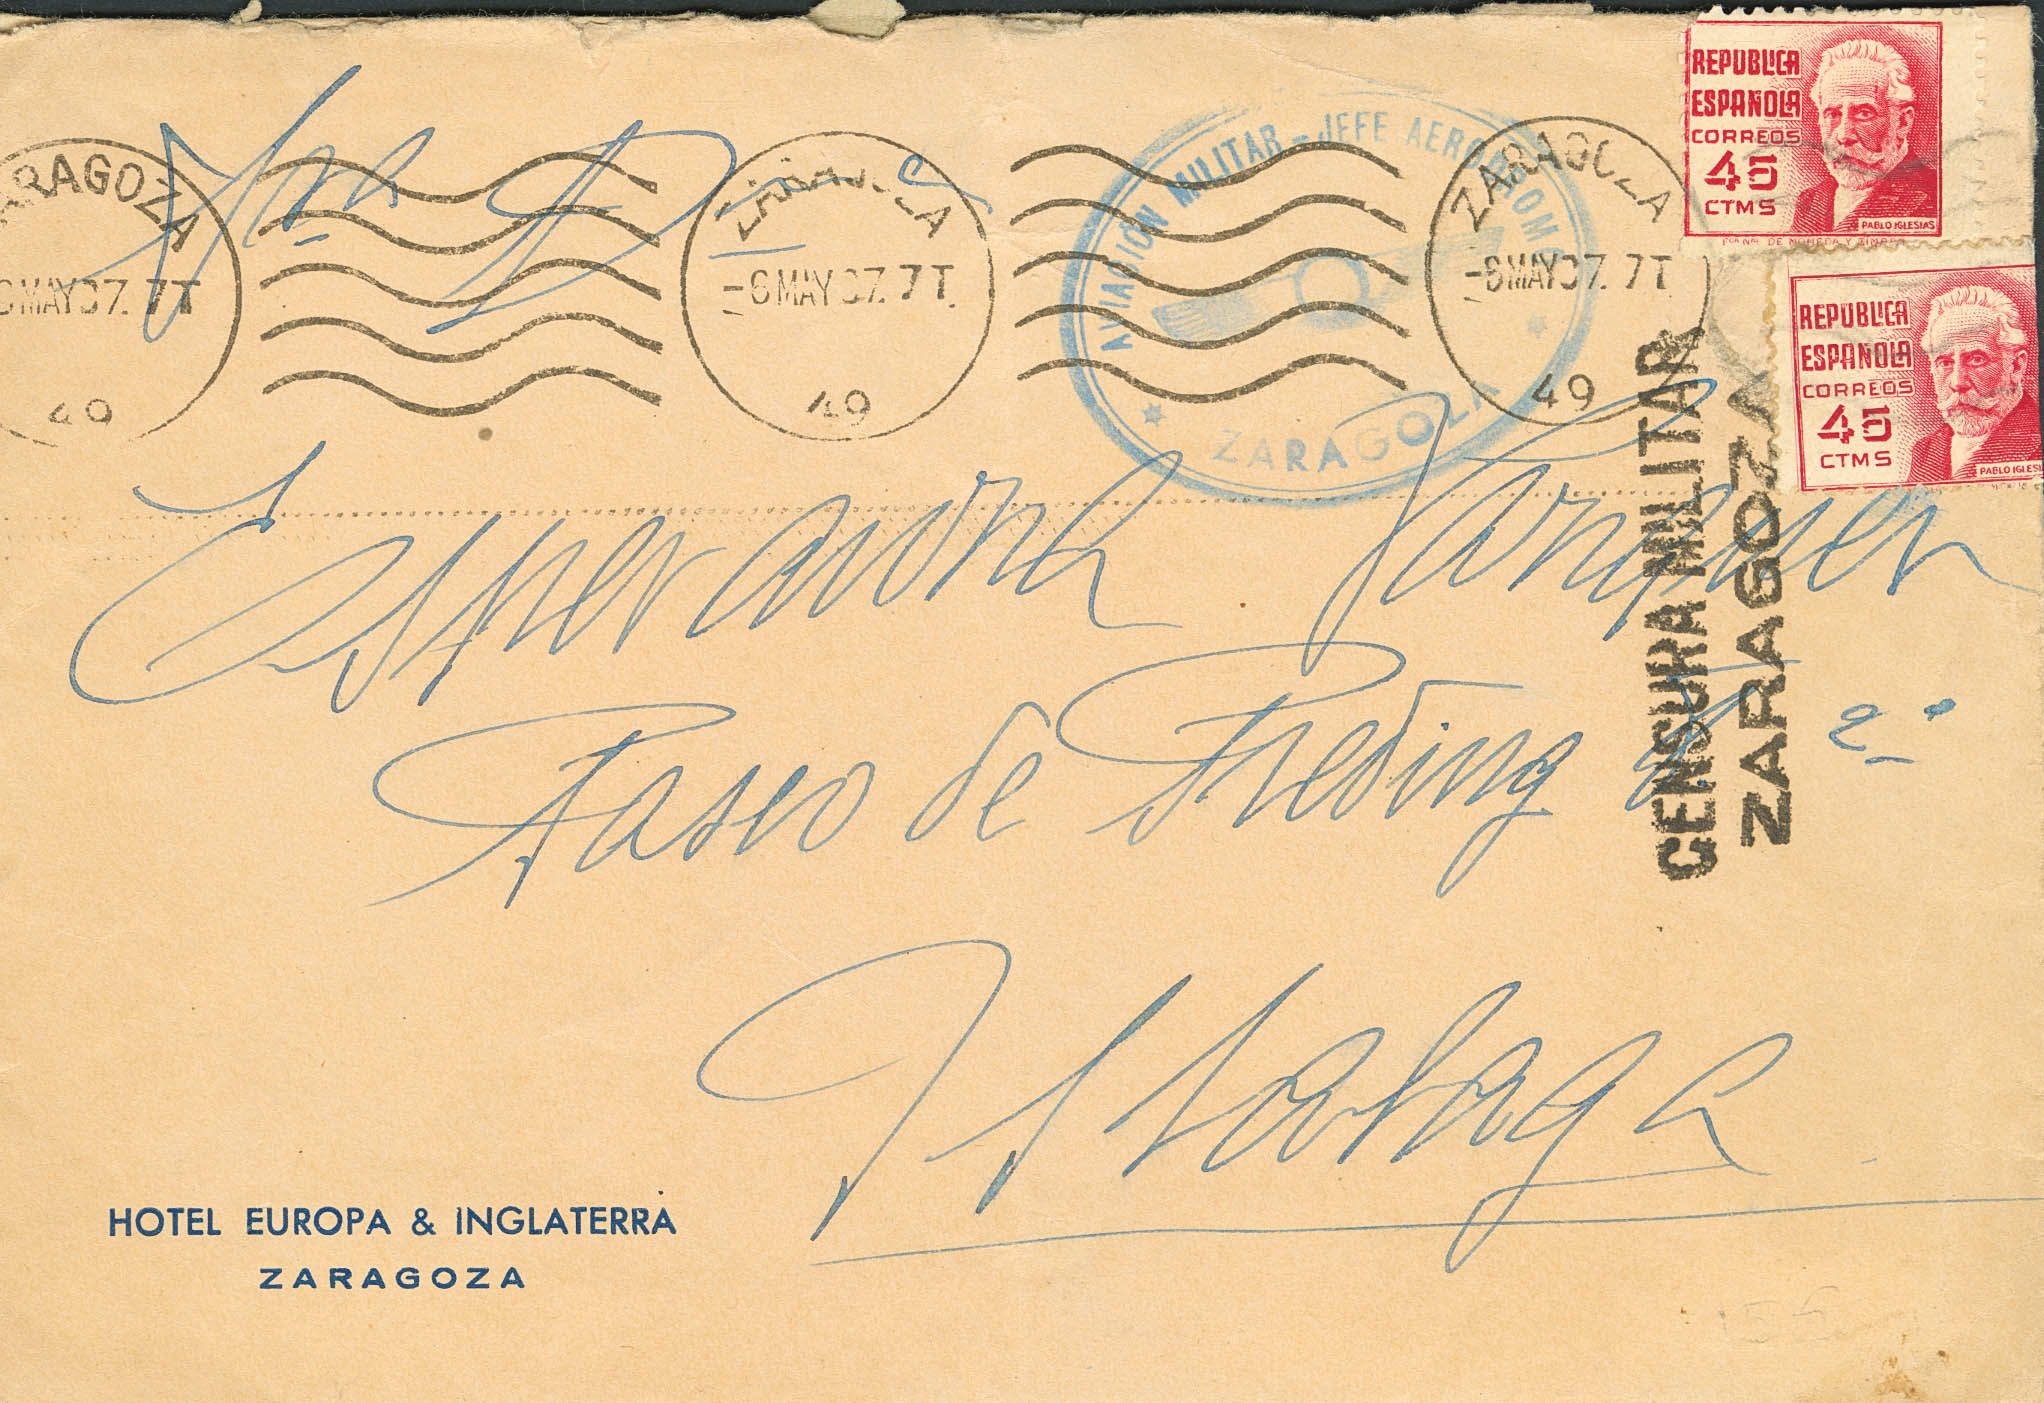 REPUBLICA
ESPAÑOLA
CORREOS
45
CTMS
PABLO IGLESIAS
Fca Nal DE MONEDA Y TIMBRE
REPUBLICA
ESPAÑOLA
CORREOS
45
CTMS
PABLO IGLESI
ARAGOZA
6 MAY 37. 7 T
49
ZARAGOZA
-6 MAY 37. 7 T.
49
ZARAGOZA
-6 MAY 37. 7 T
49
AVIACIÓN MILITAR - JEFE AERODROMO
ZARAGOZA
CENSURA MILITAR
ZARAGOZA
Sra D
Esperanza
Paseo de Reding 2º
Malaga
HOTEL EUROPA & INGLATERRA
ZARAGOZA